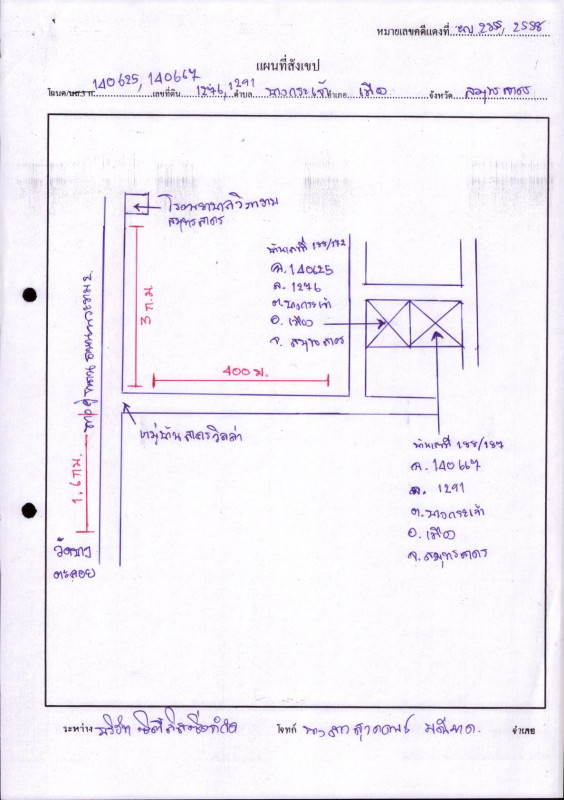 หมายเลขคดีแดงที่ ผบ 255, 2558
แผนที่สังเขป
140625, 140667
โฉนด/น.ส.3ก. เลขที่ดิน 1276, 1291 ตำบล บางกระเจ้า อำเภอ เมือง จังหวัด สมุทรสาคร
โรงพยาบาลวิภาราม
สมุทรสาคร
3 ก.ม.
ทางคู่ขนาน ถนนพระราม 2
บ้านเลขที่ 188/182
ฉ. 140625
ล. 1276
ต. บางกระเจ้า
อ. เมือง
จ. สมุทรสาคร
400 ม.
หมู่บ้าน สาครวิลล่า
1.6 กม.
วัดบาง
ตะคอย
บ้านเลขที่ 188/187
ฉ. 140667
ล. 1291
ต. บางกระเจ้า
อ. เมือง
จ. สมุทรสาคร
ระหว่าง บริษัท โจทก์ นางสาว จำเลย